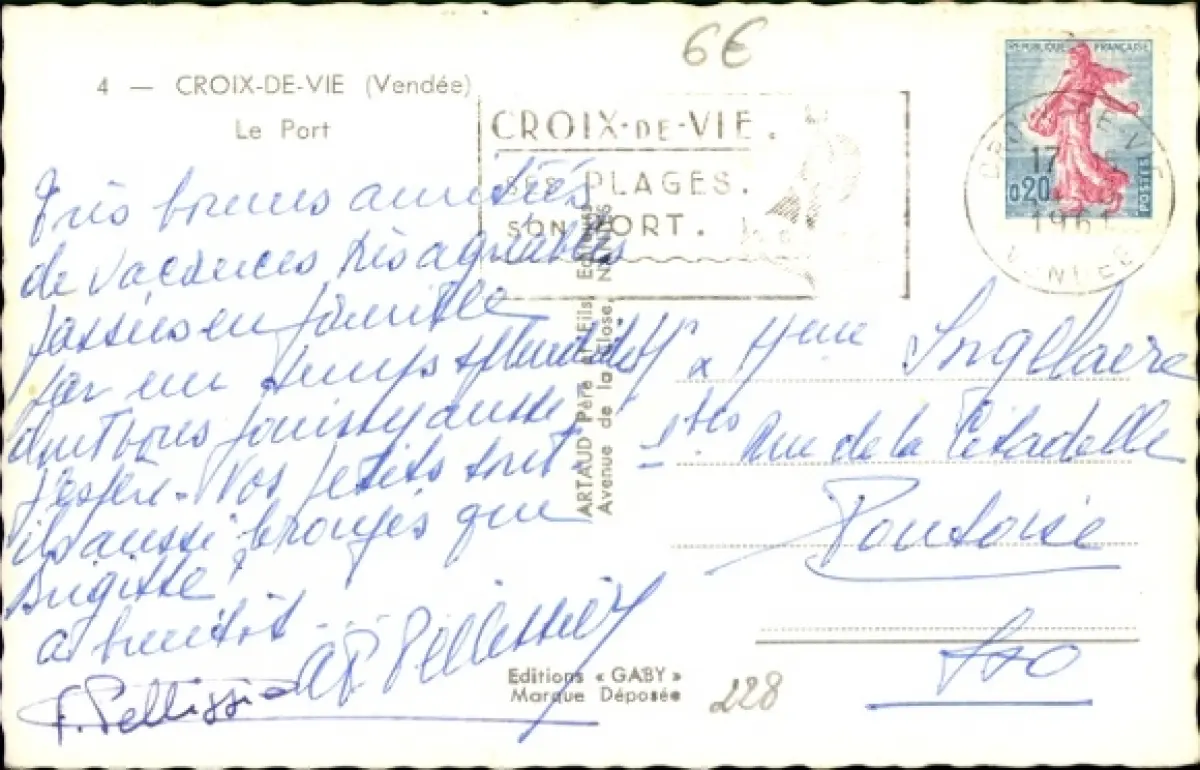 6€
4 — CROIX-DE-VIE (Vendée)
Le Port
CROIX-DE-VIE.
SES PLAGES.
SON PORT.
REPUBLIQUE FRANÇAISE
0,20
POSTES
CROIX-DE-VIE
17
VENDEE
Très bonnes amitiés
de vacances très agréables
passées en famille
par un temps splendide
dont vous jouissez aussi
j'espère. Nos petits sont
aussi bronzés que
Brigitte
à bientôt
F. Pellissier
ARTAUD Père et Fils, Editeurs
Avenue de la Close, NANTES
Mr & Mme Inglilaere
1 bis Rue de la Citadelle
Pontoise
S&O
Editions « GABY »
Marque Déposée
228